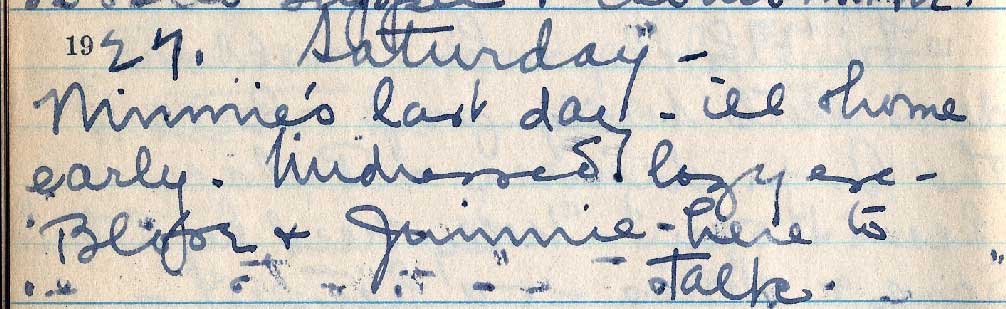 1927. Saturday -
Ninmie's last day - ill + home
early. Undressed lazy eve -
+ Jimmie - here to
talk.